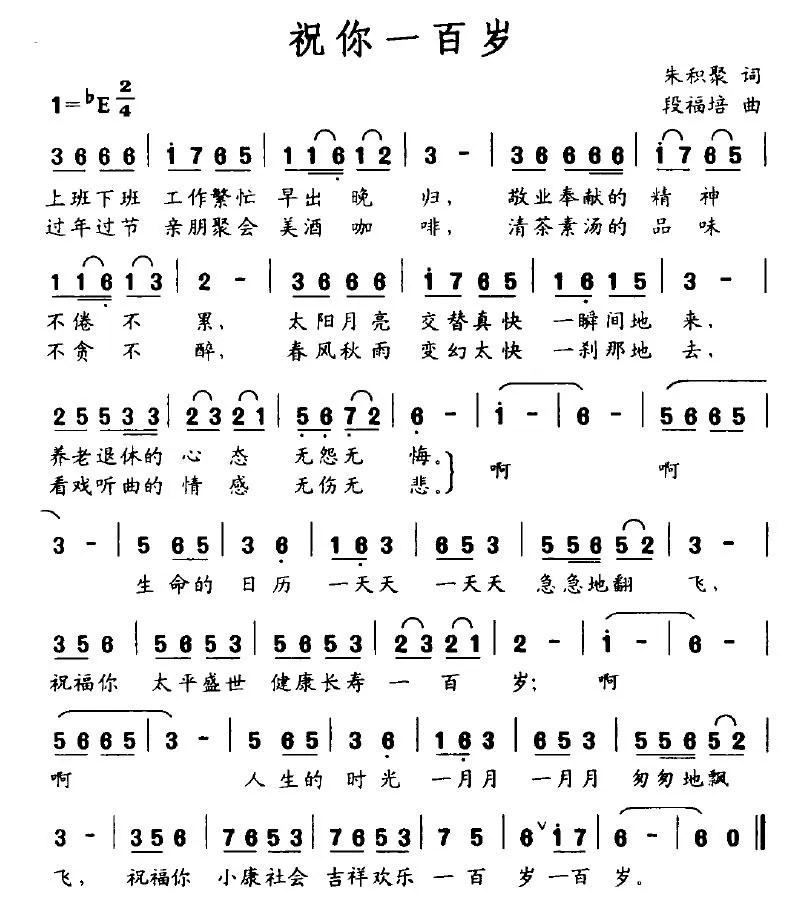 祝你一百岁
朱积聚 词
1=♭E 2/4
段福培 曲
3 6 6 6 | i 7 6 5 | 1 1 6 1 2 | 3 - | 3 6 6 6 6 | i 7 6 5 |
上班下班 工作繁忙 早出 晚 归, 敬业奉献的 精 神
过年过节 亲朋聚会 美酒 咖 啡, 清茶素汤的 品 味
1 1 6 1 3 | 2 - | 3 6 6 6 | i 7 6 5 | 1 6 1 5 | 3 - |
不倦 不 累, 太阳月亮 交替真快 一瞬间地 来,
不贪 不 醉, 春风秋雨 变幻太快 一刹那地 去,
2 5 5 3 3 | 2 3 2 1 | 5 6 7 2 | 6 - | i - | 6 - | 5 6 6 5 |
养老退休的 心 态 无怨无 悔。 啊 啊
看戏听曲的 情 感 无伤无 悲。
3 - | 5 6 5 | 3 6 | 1 6 3 | 6 5 3 | 5 5 6 5 2 | 3 - |
生命的 日历 一天天 一天天 急急地翻 飞,
3 5 6 | 5 6 5 3 | 5 6 5 3 | 2 3 2 1 | 2 - | i - | 6 - |
祝福你 太平盛世 健康长寿 一 百 岁; 啊
5 6 6 5 | 3 - | 5 6 5 | 3 6 | 1 6 3 | 6 5 3 | 5 5 6 5 2 |
啊 人生的 时光 一月月 一月月 匆匆地飘
3 - | 3 5 6 | 7 6 5 3 | 7 6 5 3 | 7 5 | 6 ∨ i 7 | 6 - | 6 0 ‖
飞, 祝福你 小康社会 吉祥欢乐 一百 岁一百 岁。